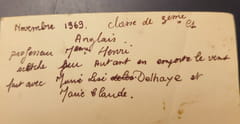 Novembre 1969. Classe de 3eme
Anglais.
professeur Henri
Autant en emporte le vent
fait avec Marie José Delhaye et
Marie Claude.